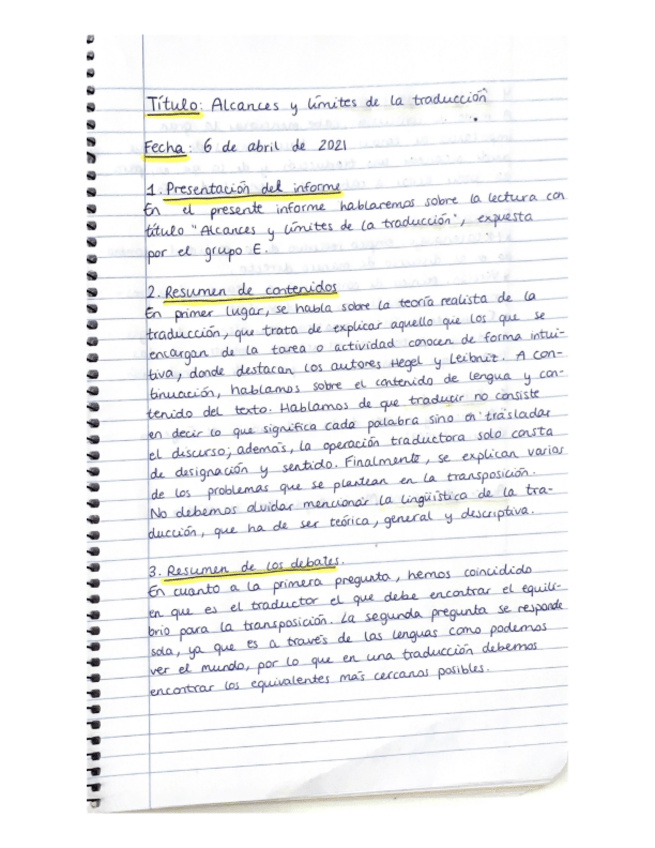 Título: Alcances y límites de la traducción
Fecha: 6 de abril de 2021
1. Presentación del informe
En el presente informe hablaremos sobre la lectura con
título "Alcances y límites de la traducción", expuesta
por el grupo E.
2. Resumen de contenidos
En primer lugar, se habla sobre la teoría realista de la
traducción, que trata de explicar aquello que los que se
encargan de la tarea o actividad conocen de forma intui-
tiva, donde destacan los autores Hegel y Leibniz. A con-
tinuación, hablamos sobre el contenido de lengua y con-
tenido del texto. Hablamos de que traducir no consiste
en decir lo que significa cada palabra sino en trasladar
el discurso; además, la operación traductora solo consta
de designación y sentido. Finalmente, se explican varios
de los problemas que se plantean en la transposición.
No debemos olvidar mencionar la lingüística de la tra-
ducción, que ha de ser teórica, general y descriptiva.
3. Resumen de los debates.
En cuanto a la primera pregunta, hemos coincidido
en que es el traductor el que debe encontrar el equili-
brio para la transposición. La segunda pregunta se responde
sola, ya que es a través de las lenguas como podemos
ver el mundo, por lo que en una traducción debemos
encontrar los equivalentes más cercanos posibles.